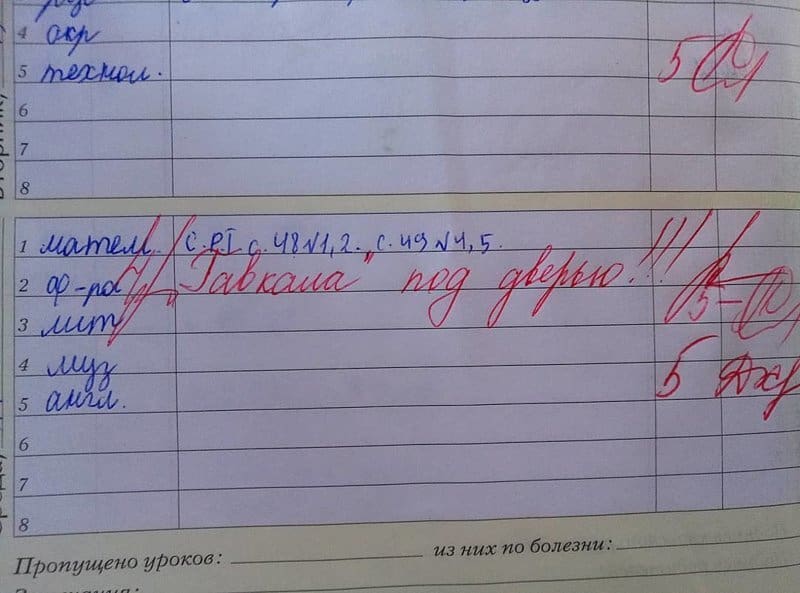 4 окр
5 технол. 5
6
7
8
1 матем. С. РТ с. 48 №1,2. с. 49 №4,5.
2 ф-ра "Гавкала" под дверью!!! 5-
3 лит
4 муз 5
5 англ.
6
7
8
Пропущено уроков: из них по болезни: